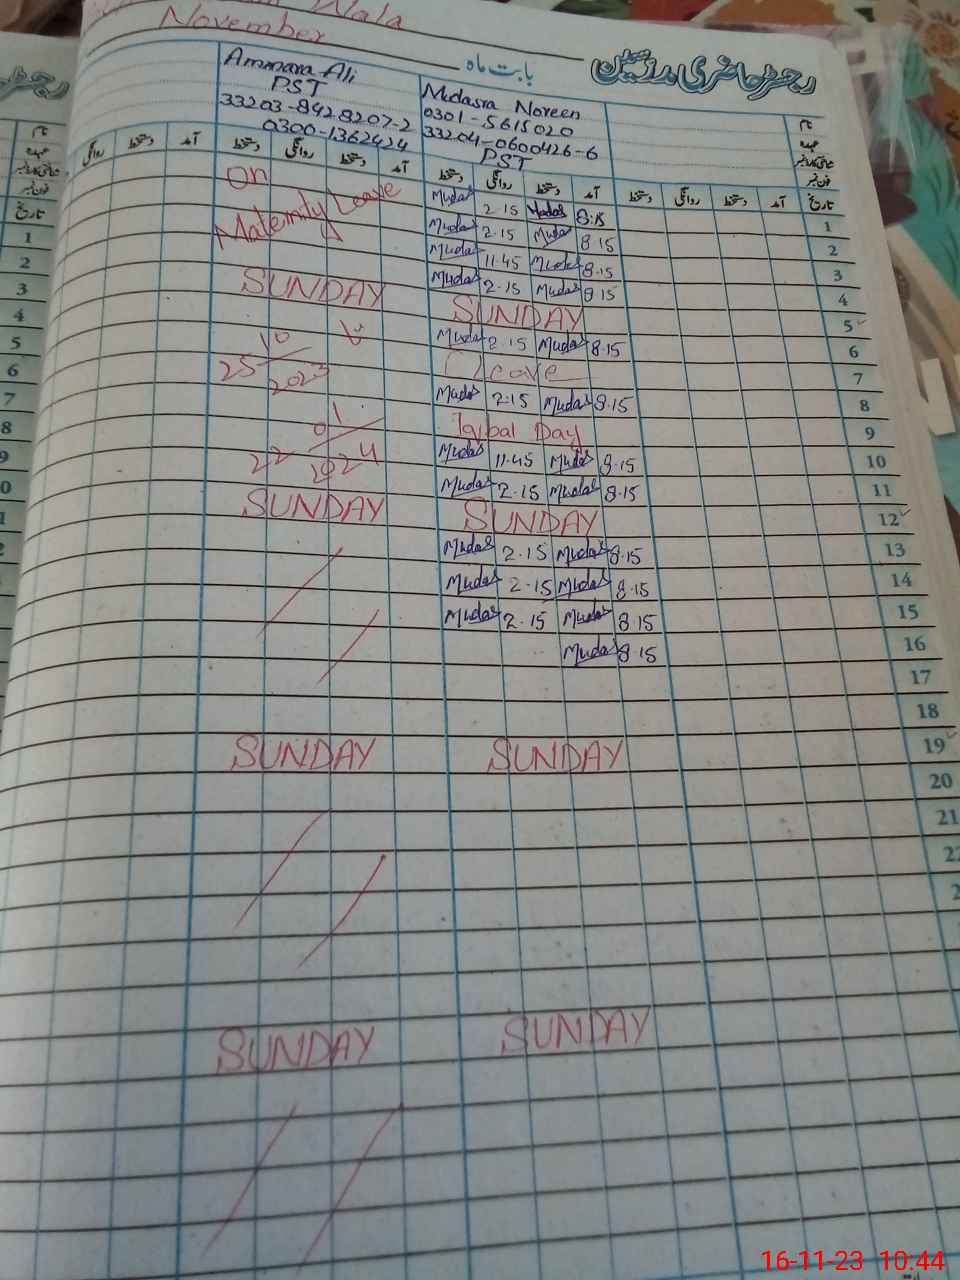 Wala
November
بابت ماہ
رجسٹر حاضری مدرسین
Ammara Ali
PST
33203-8428207-2
0300-1362424
Mudasra Noreen
0301-5615020
33204-0600426-6
PST
نام
عہدہ
شناختی کارڈ نمبر
فون نمبر
تاریخ
آمد دستخط روانگی دستخط آمد دستخط روانگی دستخط آمد دستخط روانگی
on
Maternity Leave
Mudas 2.15 Mudas 8.15 1
Mudas 2.15 Mudas 8.15 2
Mudas 11.45 Mudas 8.15 3
Mudas 2.15 Mudas 8.15 4
SUNDAY SUNDAY 5
Mudas 2.15 Mudas 8.15 6
25 10 2023
Leave 7
Mudas 2.15 Mudas 8.15 8
Iqbal Day 9
22 01 2024
Mudas 11.45 Mudas 8.15 10
Mudas 2.15 Mudas 8.15 11
SUNDAY SUNDAY 12
Mudas 2.15 Mudas 8.15 13
Mudas 2.15 Mudas 8.15 14
Mudas 2.15 Mudas 8.15 15
Mudas 8.15 16
17
18
SUNDAY SUNDAY 19
20
21
SUNDAY SUNDAY
16-11-23 10:44